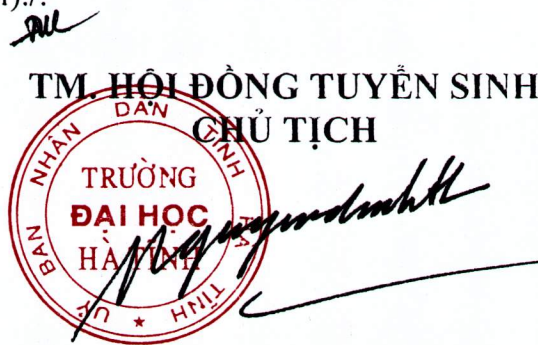 TM. HỘI ĐỒNG TUYỂN SINH
CHỦ TỊCH
ỦY BAN NHÂN DÂN TỈNH HÀ TĨNH
TRƯỜNG
ĐẠI HỌC
HÀ TĨNH